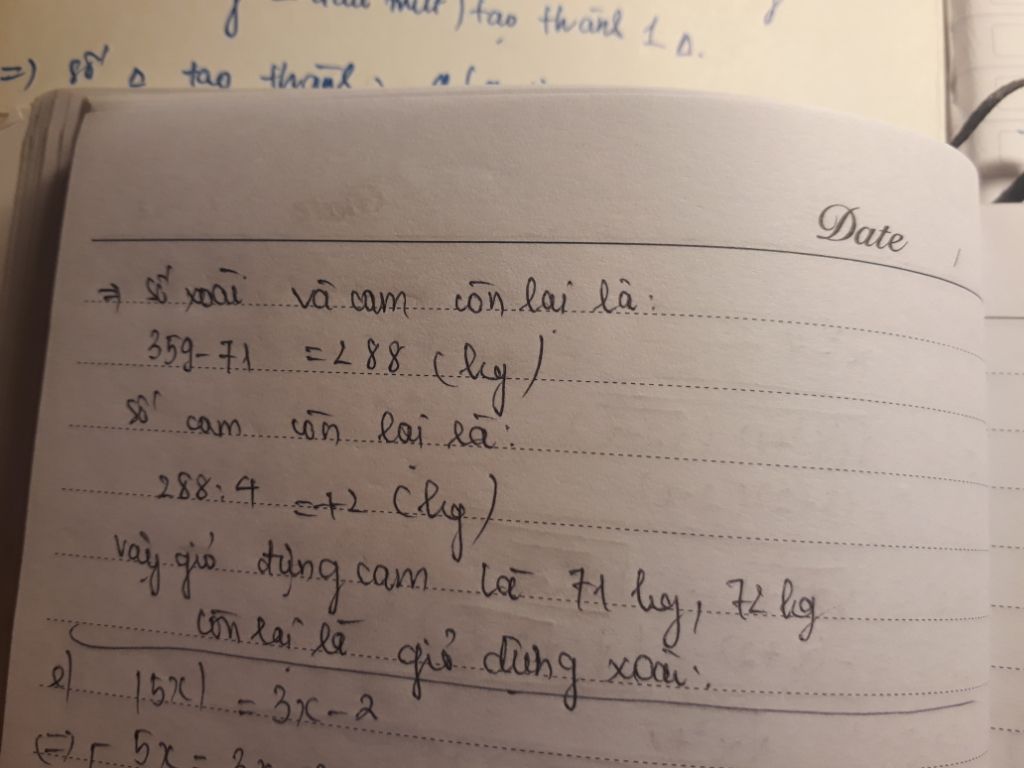 tạo thành 1 Δ.
=) số Δ tạo thành
Date
⇒ số xoài và cam còn lại là:
359-71 = 288 (kg)
số cam còn lại là:
288:4 = 72 (kg)
vậy giỏ đựng cam là 71 kg, 72 kg
còn lại là giỏ đừng xoài.
e) |5x| = 3x - 2
(=)